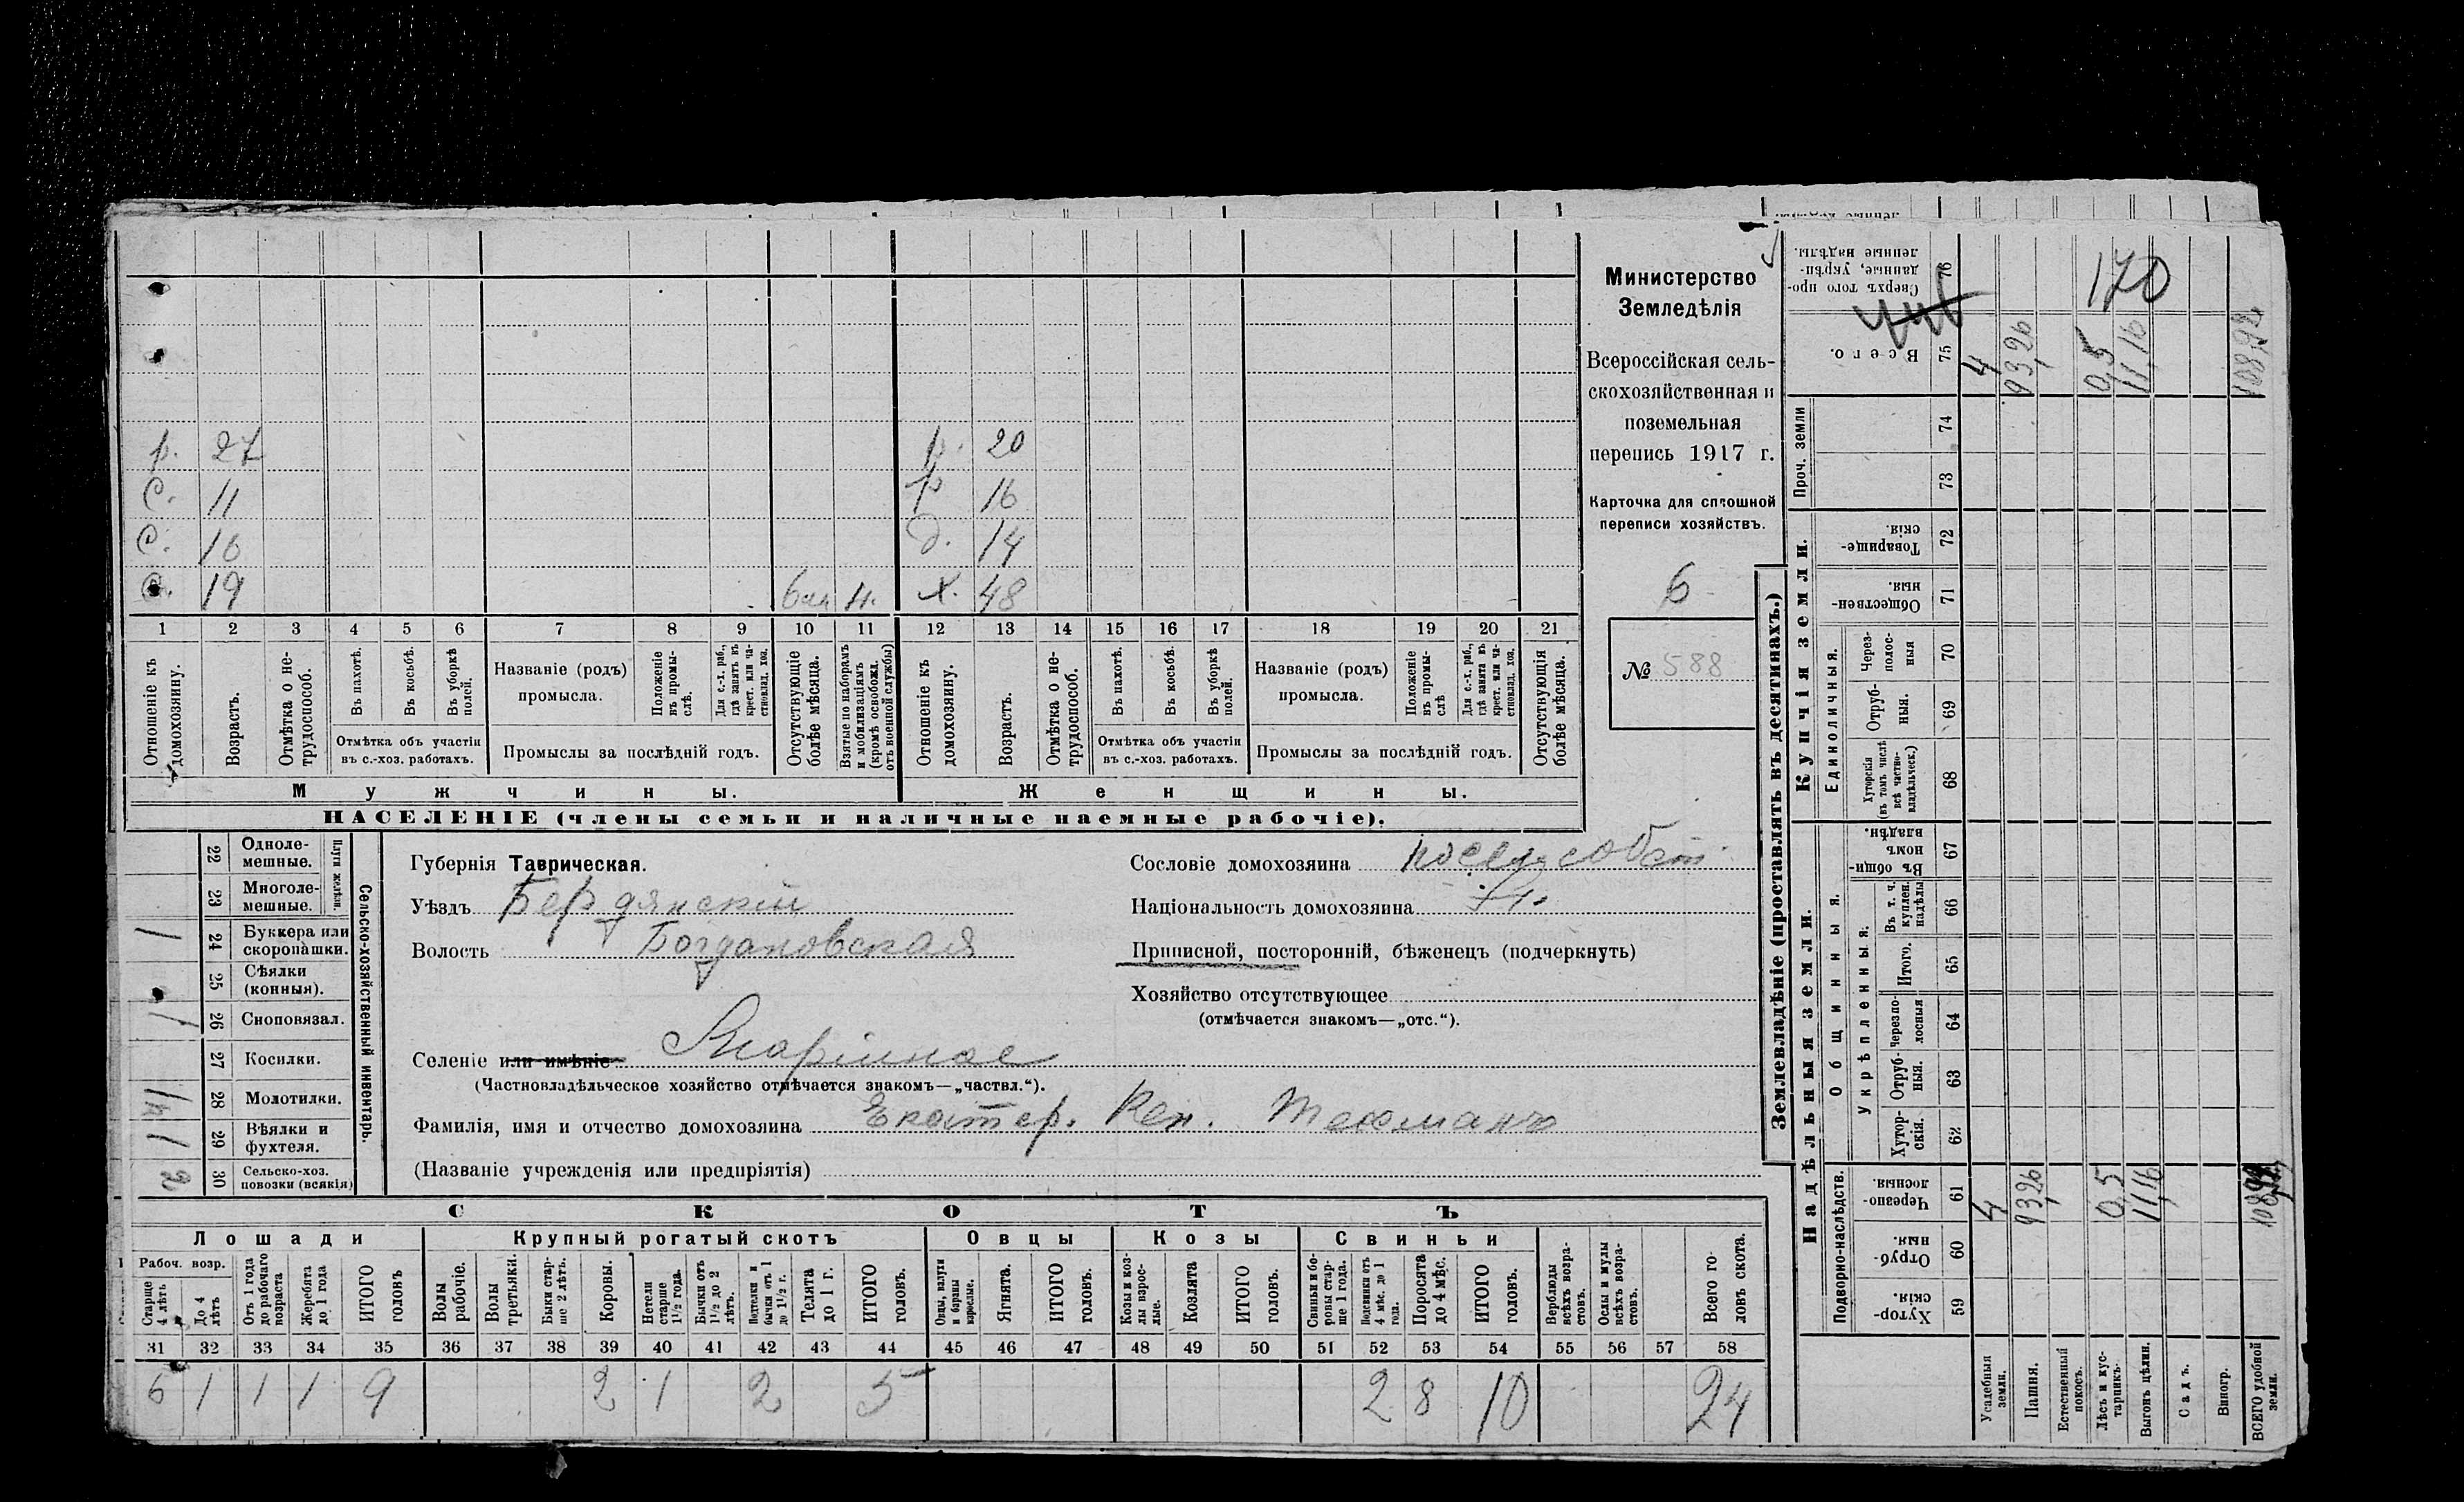 Министерство
Земледѣлія
Всероссійская сель-
скохозяйственная и
поземельная
перепись 1917 г.
Карточка для сплошной
переписи хозяйствъ.
6
№ 588
р. 27 р. 20
С. 11 р 16
С. 16 д. 14
С. 19 н. х. 48
1 2 3 4 5 6 7 8 9 10 11 12 13 14 15 16 17 18 19 20 21
Отношеніе къ домохозяину.
Возрастъ.
Отмѣтка о не-трудоспособ.
Въ пахотѣ.
Въ косьбѣ.
Въ уборкѣ полей.
Отмѣтка объ участіи
въ с.-хоз. работахъ.
Названіе (родъ)
промысла.
Положеніе въ промы-слѣ.
Для с.-х. раб., гдѣ занятъ въ крест. или ча-стновлад. хоз.
Промыслы за послѣдній годъ.
Отсутствующіе болѣе мѣсяца.
Взятые по наборамъ и мобилизаціямъ (кромѣ освобожд. отъ военной службы)
Отношеніе къ домохозяину.
Возрастъ.
Отмѣтка о не-трудоспособ.
Въ пахотѣ.
Въ косьбѣ.
Въ уборкѣ полей.
Отмѣтка объ участіи
въ с.-хоз. работахъ.
Названіе (родъ)
промысла.
Положеніе въ промы-слѣ
Для с.-х. раб., гдѣ занята въ крест. или ча-стновлад. хоз.
Промыслы за послѣдній годъ.
Отсутствующія болѣе мѣсяца.
Мужчины. Женщины.
НАСЕЛЕНІЕ (члены семьи и наличные наемные рабочіе).
Сельско-хозяйственный инвентарь.
Плуги желѣзн.
22 Одноле-мешные.
23 Многоле-мешные.
1 24 Буккера или скоропашки.
25 Сѣялки (конныя).
1 26 Сноповязал.
27 Косилки.
28 Молотилки.
1 29 Вѣялки и фухтеля.
2 30 Сельско-хоз. повозки (всякія)
Губернія Таврическая.
Уѣздъ Бердянскій
Волость Богдановская
Селеніе или имѣніе
(Частновладѣльческое хозяйство отмѣчается знакомъ—„частвл.“).
Фамилія, имя и отчество домохозяина Екатер. Тексманъ
(Названіе учрежденія или предпріятія)
Сословіе домохозяина посел. собст.
Національность домохозяина
Приписной, посторонній, бѣженецъ (подчеркнуть)
Хозяйство отсутствующее
(отмѣчается знакомъ—„отс.“).
СКОТЪ
Лошади Крупный рогатый скотъ Овцы Козы Свиньи
Рабоч. возр.
Старше 4 лѣтъ
До 4 лѣтъ
Отъ 1 года до рабочаго возраста
Жеребята до 1 года
ИТОГО головъ
Волы рабочіе.
Волы третьяки.
Быки стар-ше 2 лѣтъ.
Коровы.
Нетели старше 1½ года.
Бычки отъ 1½ до 2 лѣтъ.
Подтелки и бычки отъ 1 до 1½ г.
Телята до 1 г.
ИТОГО головъ.
Овцы, валухи и бараны взрослые.
Ягнята.
ИТОГО головъ.
Козы и коз-лы взрос-лые.
Козлята
ИТОГО головъ.
Свиньи и бо-ровы стар-ше 1 года.
Подсвинки отъ 4 мѣс. до 1 года.
Поросята до 4 мѣс.
ИТОГО головъ.
Верблюды всѣхъ возра-стовъ.
Ослы и мулы всѣхъ возра-стовъ.
Всего го-ловъ скота.
31 32 33 34 35 36 37 38 39 40 41 42 43 44 45 46 47 48 49 50 51 52 53 54 55 56 57 58
6 1 1 1 9 2 1 2 5 2 8 10 24
Землевладѣніе (проставлять въ десятинахъ.)
Надѣльныя земли. Купчія земли. Проч. земли
Подворно-наслѣдств.
Общинныя.
Укрѣпленныя.
Единоличныя.
Хутор-скія. 59
Отруб-ныя. 60
Черезпо-лосныя. 61
Хутор-скія. 62
Отруб-ныя. 63
Черезпо-лосныя 64
Итого. 65
Въ т. ч. куплен. надѣлы 66
Въ общин-номъ владѣн. 67
Хуторскія (въ томъ числѣ всѣ частно-владѣльческ.) 68
Отруб-ныя. 69
Через-полос-ныя 70
Обществен-ныя. 71
Товарище-скія. 72
73
74
Всего. 75
Сверхъ того про-данные, укрѣп-ленные надѣлы. 76
Усадебныя земли. 4 4
Пашня. 93,26 93,26
Естественный покосъ.
Лѣсъ и кус-тарникъ. 0,5 0,5
Выгонъ цѣлин. 11,16 11,16
Садъ.
Виногр.
ВСЕГО удобной земли. 108,92 108,92
170